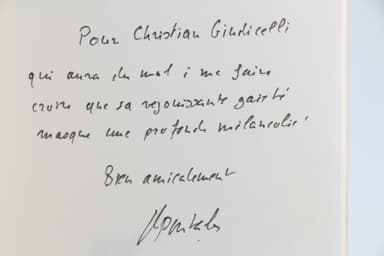 Pour Christian Giudicelli
qui aura du mal à me faire
croire que sa réjouissante gaieté
masque une profonde mélancolie
Bien amicalement